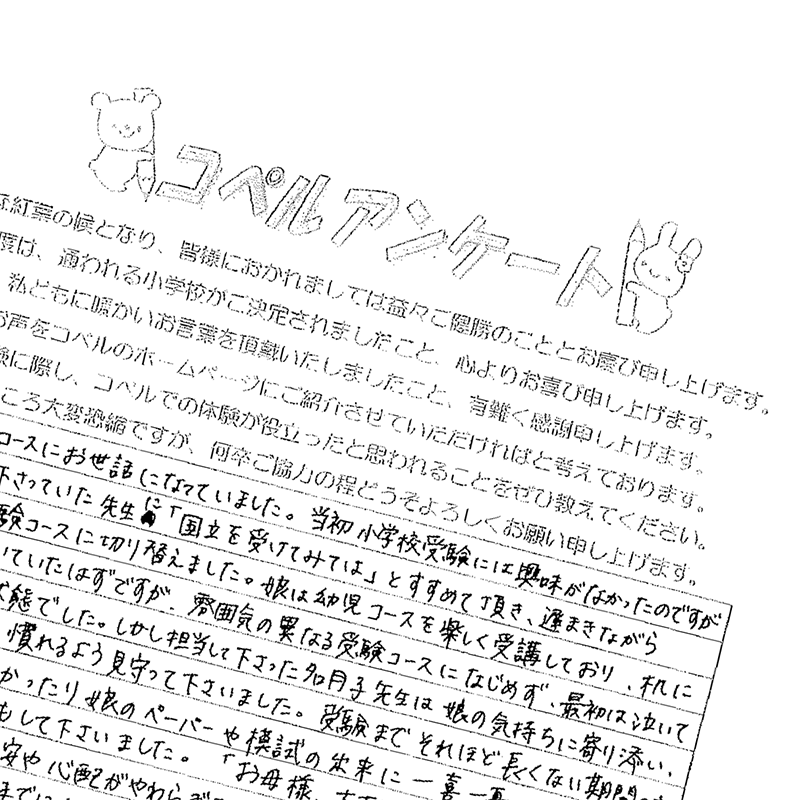 コペルアンケート
紅葉の候となり、皆様におかれましては益々ご健勝のこととお慶び申し上げます。
度は、通われる小学校がご決定されましたこと、心よりお喜び申し上げます。
私どもに暖かいお言葉を頂戴いたしましたこと、有難く感謝申し上げます。
お声をコペルのホームページにご紹介させていただければと考えております。
験に際し、コペルでの体験が役立ったと思われることをぜひ教えてください。
ころ大変恐縮ですが、何卒ご協力の程どうぞよろしくお願い申し上げます。
コースにお世話になっていました。当初小学校受験には興味がなかったのですが
下さっていた先生に「国立を受けてみては」とすすめて頂き、遅まきながら
験コースに切り替えました。娘は幼児コースを楽しく受講しており、机に
いていたはずですが、雰囲気の異なる受験コースになじめず、最初は泣いて
状態でした。しかし担当して下さった先生は娘の気持ちに寄り添い、
慣れるよう見守って下さいました。受験までそれほど長くない期間
かったり娘のペーパーや模試の出来に一喜一
もして下さいました。「お母様、
安や心配がやわら